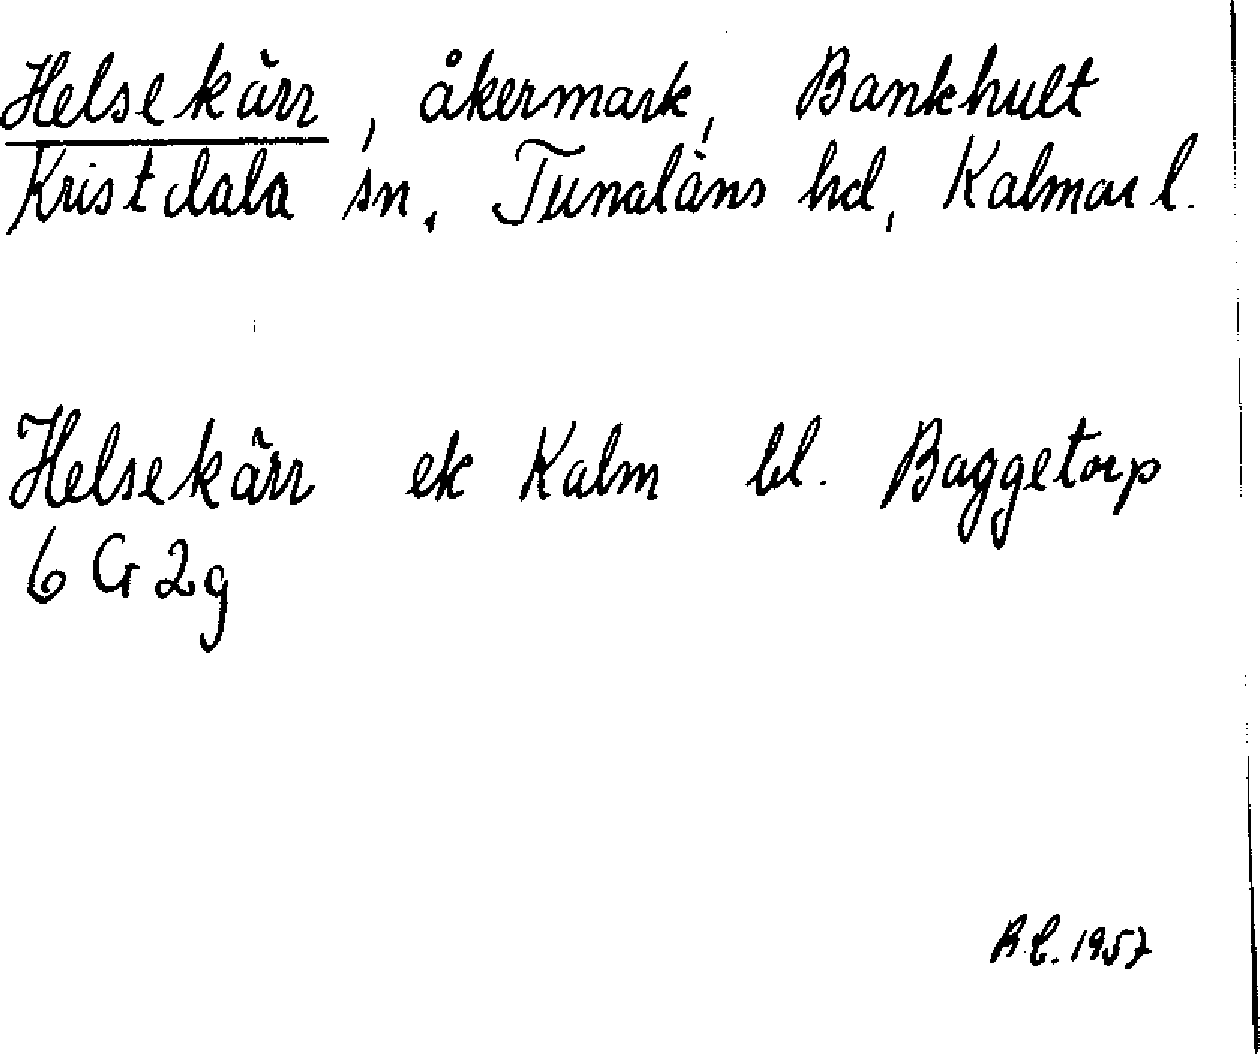 Helsekärr, åkermark, Bankhult
Kristdala sn. Tunaläns hd, Kalmar l.
Helsekärr ek Kalm bl. Baggetorp
6 G 2g
1957